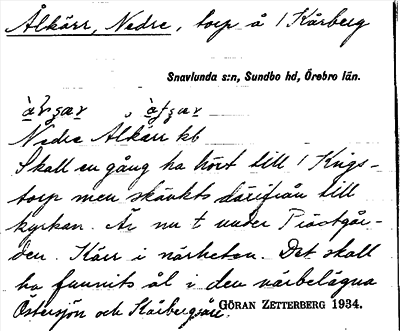 Ålkärr, Nedre, torp å 1 Kårberg
Snavlunda s:n, Sundbo hd, Örebro län.
Nedre Ålkärr kb
Skall en gång ha hört till 1 Krigs-
torp men skänkts därifrån till
kyrkan. Är nu t under Prästgår-
den. Kärr i närheten. Det skall
ha funnits ål i den närbelägna
Östersjön och Kårbergsån.
GÖRAN ZETTERBERG 1934.